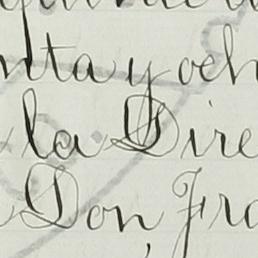 nta y och
la Dire
Don Fra